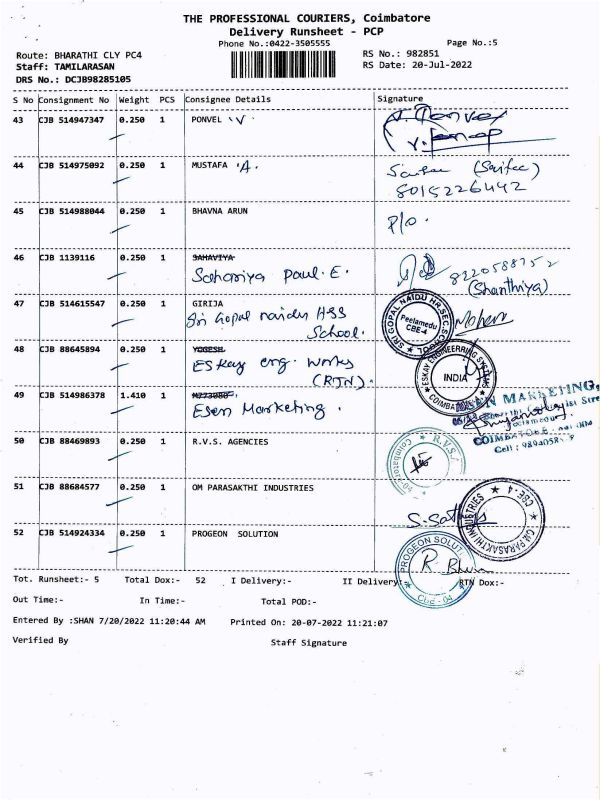 THE PROFESSIONAL COURIERS, Coimbatore
Delivery Runsheet - PCP
Phone No.:0422-3505555
Page No.:5
Route: BHARATHI CLY PC4
RS No.: 982851
Staff: TAMILARASAN
RS Date: 20-Jul-2022
DRS No.: DCJB98285105
S No Consignment No Weight PCS Consignee Details Signature
43 CJB 514947347 0.250 1 PONVEL V
44 CJB 514975092 0.250 1 MUSTAFA A. (Saifee)
8015226442
45 CJB 514988044 0.250 1 BHAVNA ARUN P/o.
46 CJB 1139116 0.250 1 SAHAVIYA 8220588752
Sahaviya Paul. E. (Shanthiya)
47 CJB 514615547 0.250 1 GIRIJA
Sri Gopal naidu HSS
School.
SRI GOPAL NAIDU HR.SEC.SCHOOL
Peelamedu
CBE-4
48 CJB 88645894 0.250 1 YOGESH
ESkay eng. Works
(RTN).
ESKAY ENGINEERRING SYSTEMS
INDIA
49 CJB 514986378 1.410 1
Esen Marketing.
ESEN MARKETING,
COIMBATORE
Cell :
50 CJB 88469893 0.250 1 R.V.S. AGENCIES
R.V.S.
Coimbatore
51 CJB 88684577 0.250 1 OM PARASAKTHI INDUSTRIES
OM PARASAKTHI INDUSTRIES CBE-4
52 CJB 514924334 0.250 1 PROGEON SOLUTION
PROGEON SOLUTION
CBE - 04
Tot. Runsheet:- 5 Total Dox:- 52 I Delivery:- II Delivery:- RTN Dox:-
Out Time:- In Time:- Total POD:-
Entered By :SHAN 7/20/2022 11:20:44 AM Printed On: 20-07-2022 11:21:07
Verified By Staff Signature